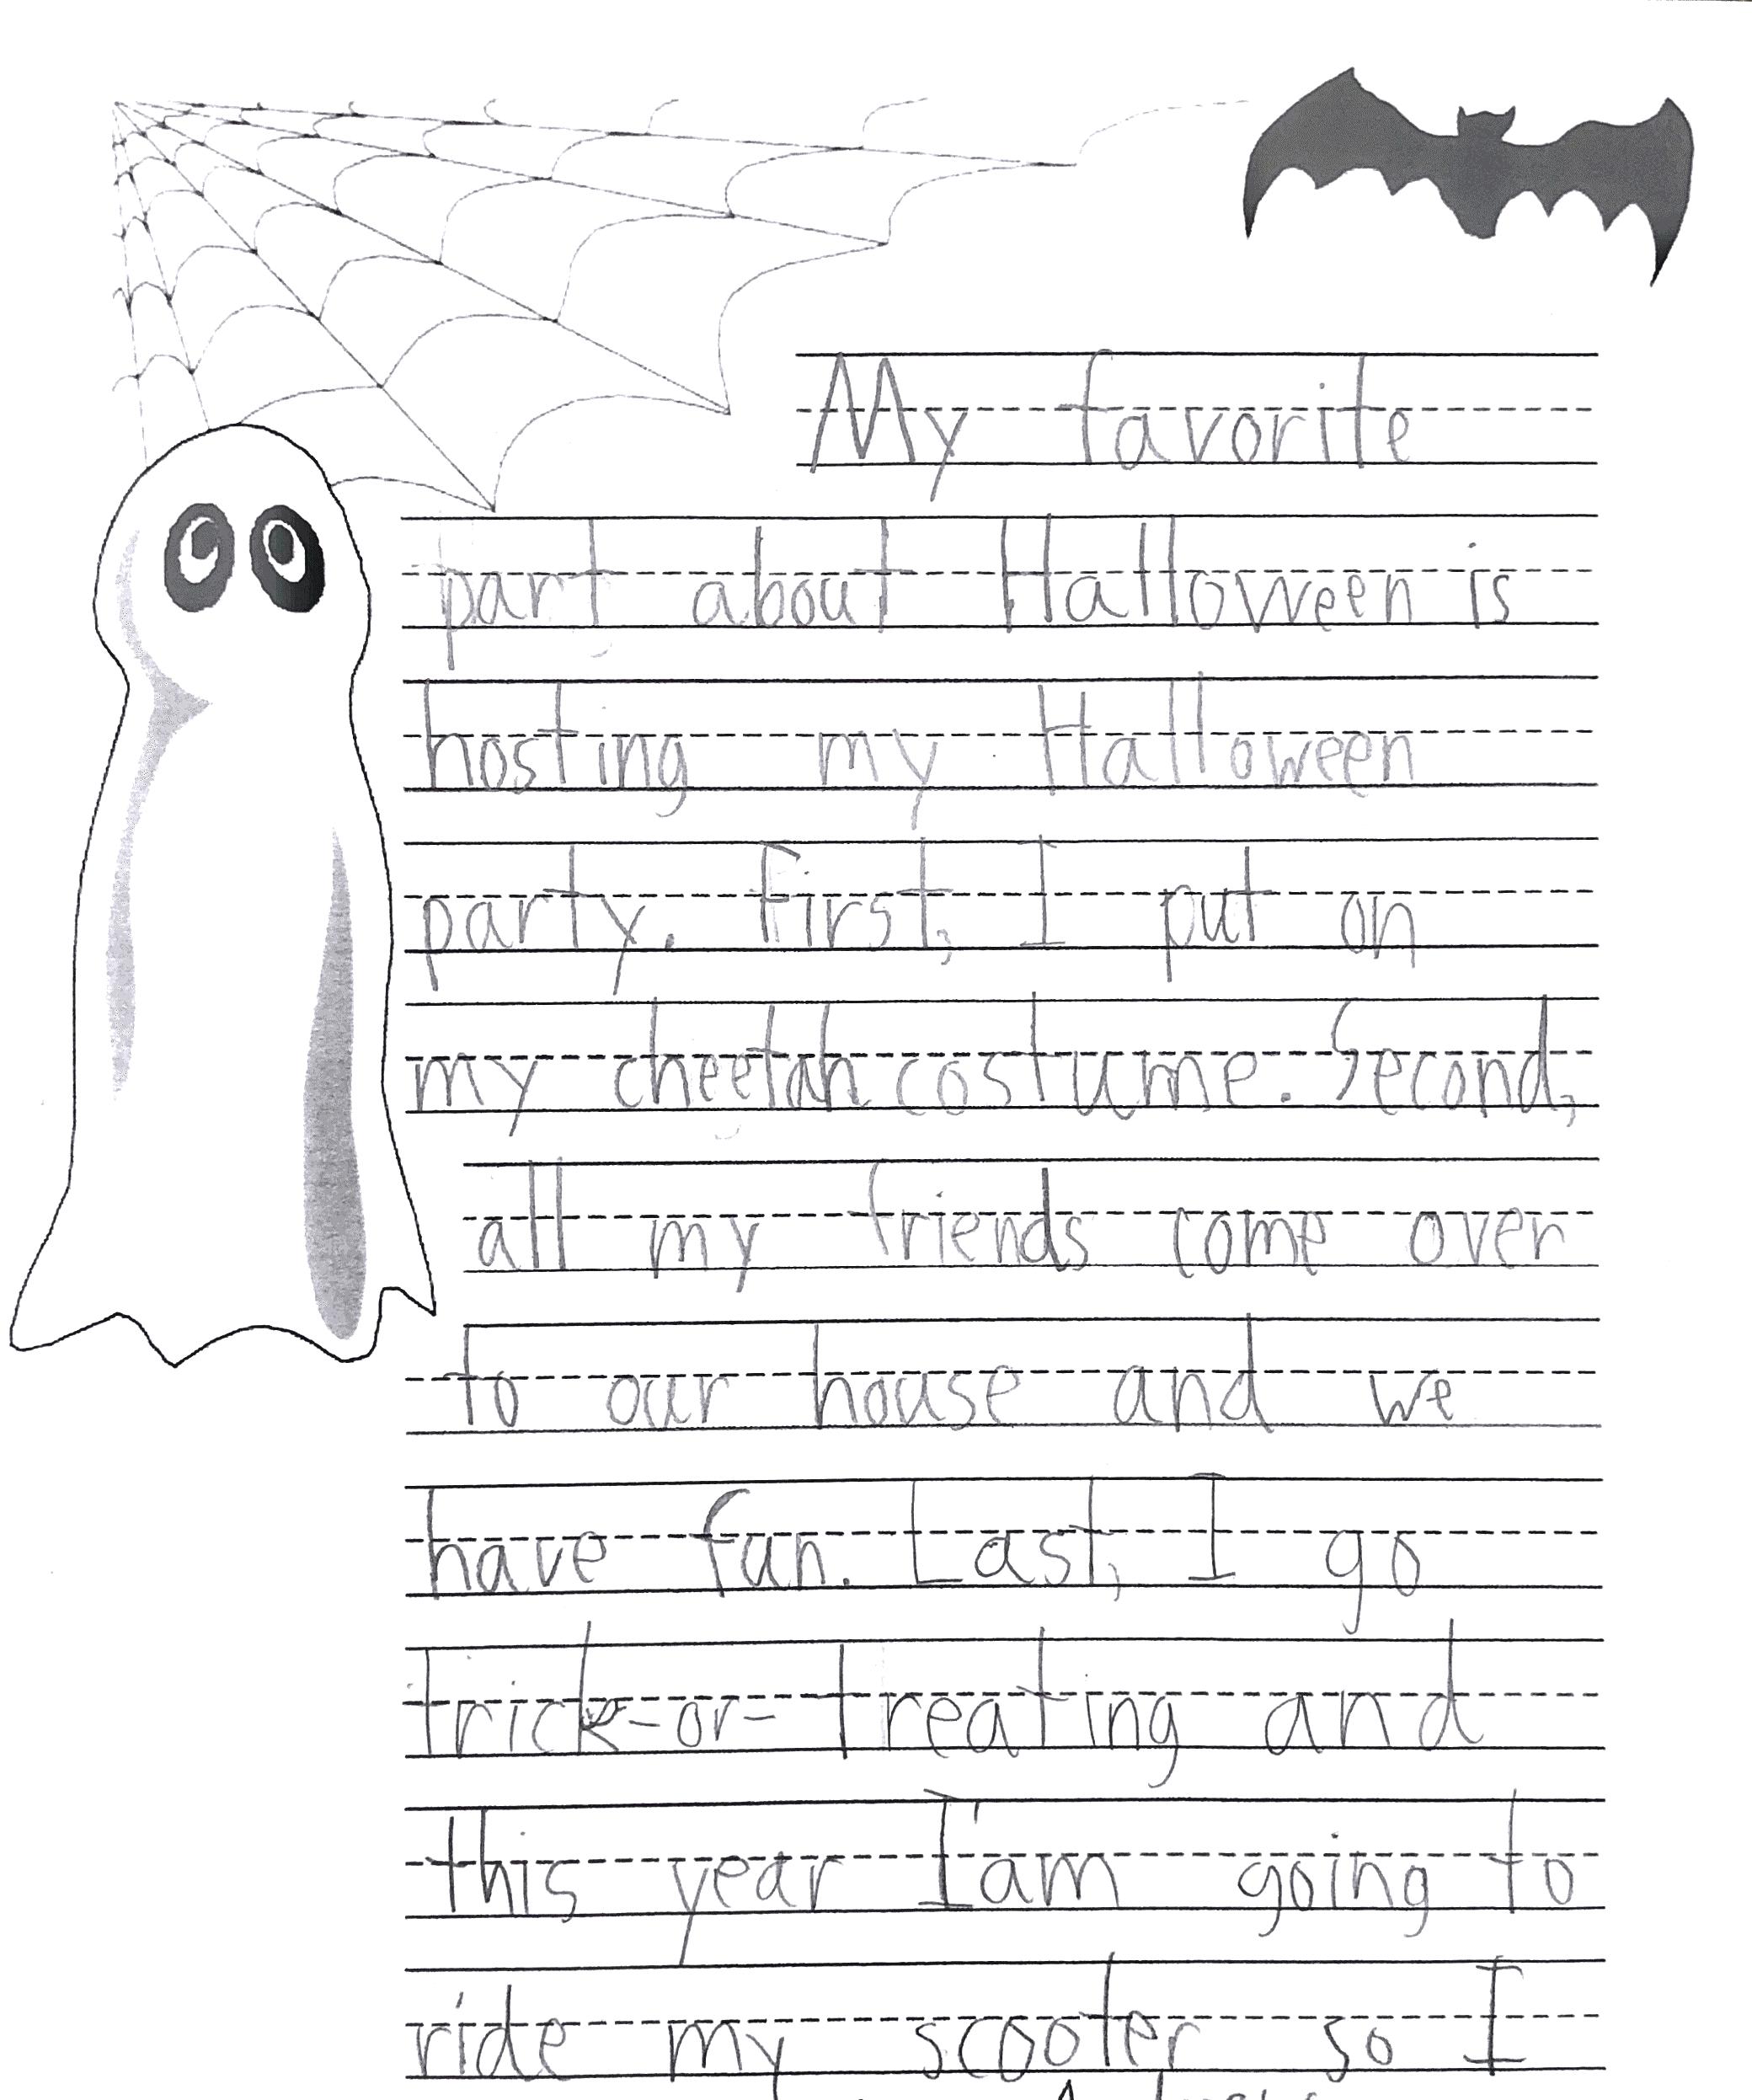 My favorite
part about Halloween is
hosting my Halloween
party. First, I put on
my cheetah costume. Second,
all my friends come over
to our house and we
have fun. Last, I go
trick-or-treating and
this year I'am going to
ride my scooter so I